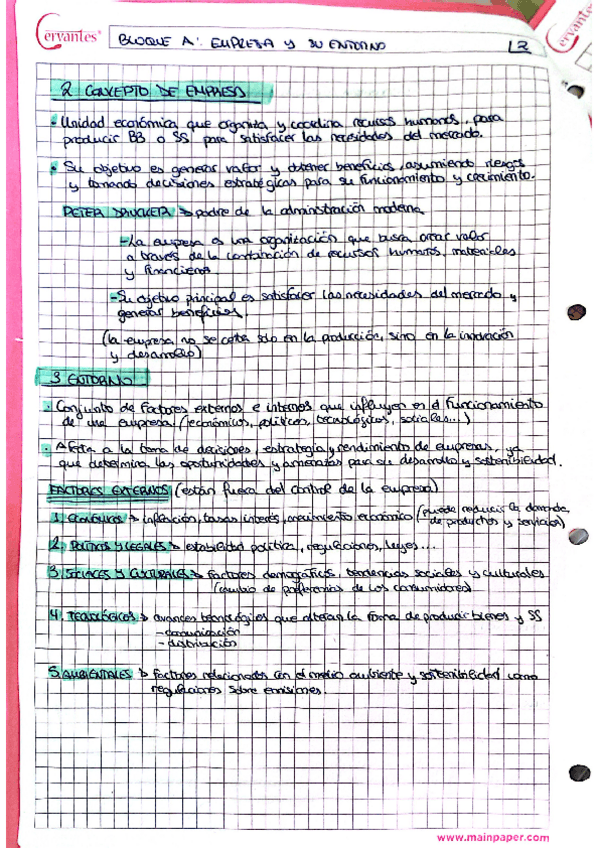 Cervantes
BLOQUE A: EMPRESA Y SU ENTORNO
12
ervantes
2 CONCEPTO DE EMPRESA
· Unidad económica que organiza y coordina recursos humanos, para
producir BB o SS para satisfacer las necesidades del mercado.
· Su objetivo es generar valor y obtener beneficios, asumiendo riesgos
y tomando decisiones estratégicas para su funcionamiento y crecimiento.
PETER DRUCKER → padre de la administración moderna
-La empresa es una organización que busca crear valor
a través de la combinación de recursos humanos, materiales
y financieros
-Su objetivo principal es satisfacer las necesidades del mercado y
generar beneficios.
(la empresa no se centra solo en la producción, sino en la innovación
y desarrollo)
3 ENTORNO
· Conjunto de factores externos e internos que influyen en el funcionamiento
de una empresa (económicos, políticos, tecnológicos, sociales...)
· Afecta a la toma de decisiones, estrategia y rendimiento de empresas, ya
que determina las oportunidades y amenazas para su desarrollo y sostenibilidad.
FACTORES EXTERNOS (están fuera del control de la empresa)
1. ECONÓMICOS → inflación, tasas interés, crecimiento económico (puede reducir la demanda
de productos y servicios)
2. POLÍTICOS Y LEGALES → estabilidad política, regulaciones, leyes...
3 SOCIALES Y CULTURALES → factores demográficos, tendencias sociales y culturales
(cambio de preferencias de los consumidores)
4. TECNOLÓGICOS → avances tecnológicos que alteran la forma de producir bienes y SS
- comunicación
- distribución
5. AMBIENTALES → factores relacionados con el medio ambiente y sostenibilidad como
regulaciones sobre emisiones.
www.mainpaper.com